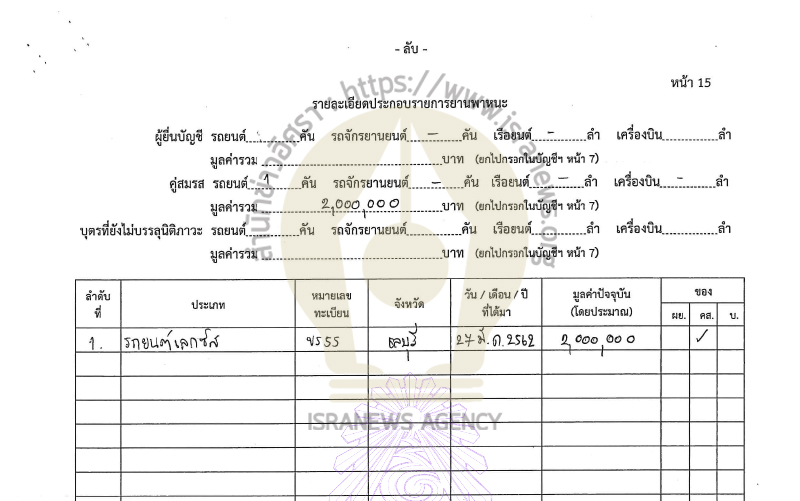 - ลับ -
หน้า 15
รายละเอียดประกอบรายการยานพาหนะ
ผู้ยื่นบัญชี รถยนต์ คัน รถจักรยานยนต์ – คัน เรือยนต์ - ลำ เครื่องบิน ลำ
มูลค่ารวม บาท (ยกไปกรอกในบัญชีฯ หน้า 7)
คู่สมรส รถยนต์ 1 คัน รถจักรยานยนต์ – คัน เรือยนต์ – ลำ เครื่องบิน - ลำ
มูลค่ารวม 2,000,000 บาท (ยกไปกรอกในบัญชีฯ หน้า 7)
บุตรที่ยังไม่บรรลุนิติภาวะ รถยนต์ คัน รถจักรยานยนต์ คัน เรือยนต์ ลำ เครื่องบิน ลำ
มูลค่ารวม บาท (ยกไปกรอกในบัญชีฯ หน้า 7)
ลำดับที่ ประเภท หมายเลขทะเบียน จังหวัด วัน / เดือน / ปี ที่ได้มา มูลค่าปัจจุบัน (โดยประมาณ) ของ
ผย. คส. บ.
1. รถยนต์เลกซัส 55 ชลบุรี 27 มี.ค. 2562 2,000,000 ✓
สำนักข่าวอิศรา - https://www.isranews.org
ISRANEWS AGENCY